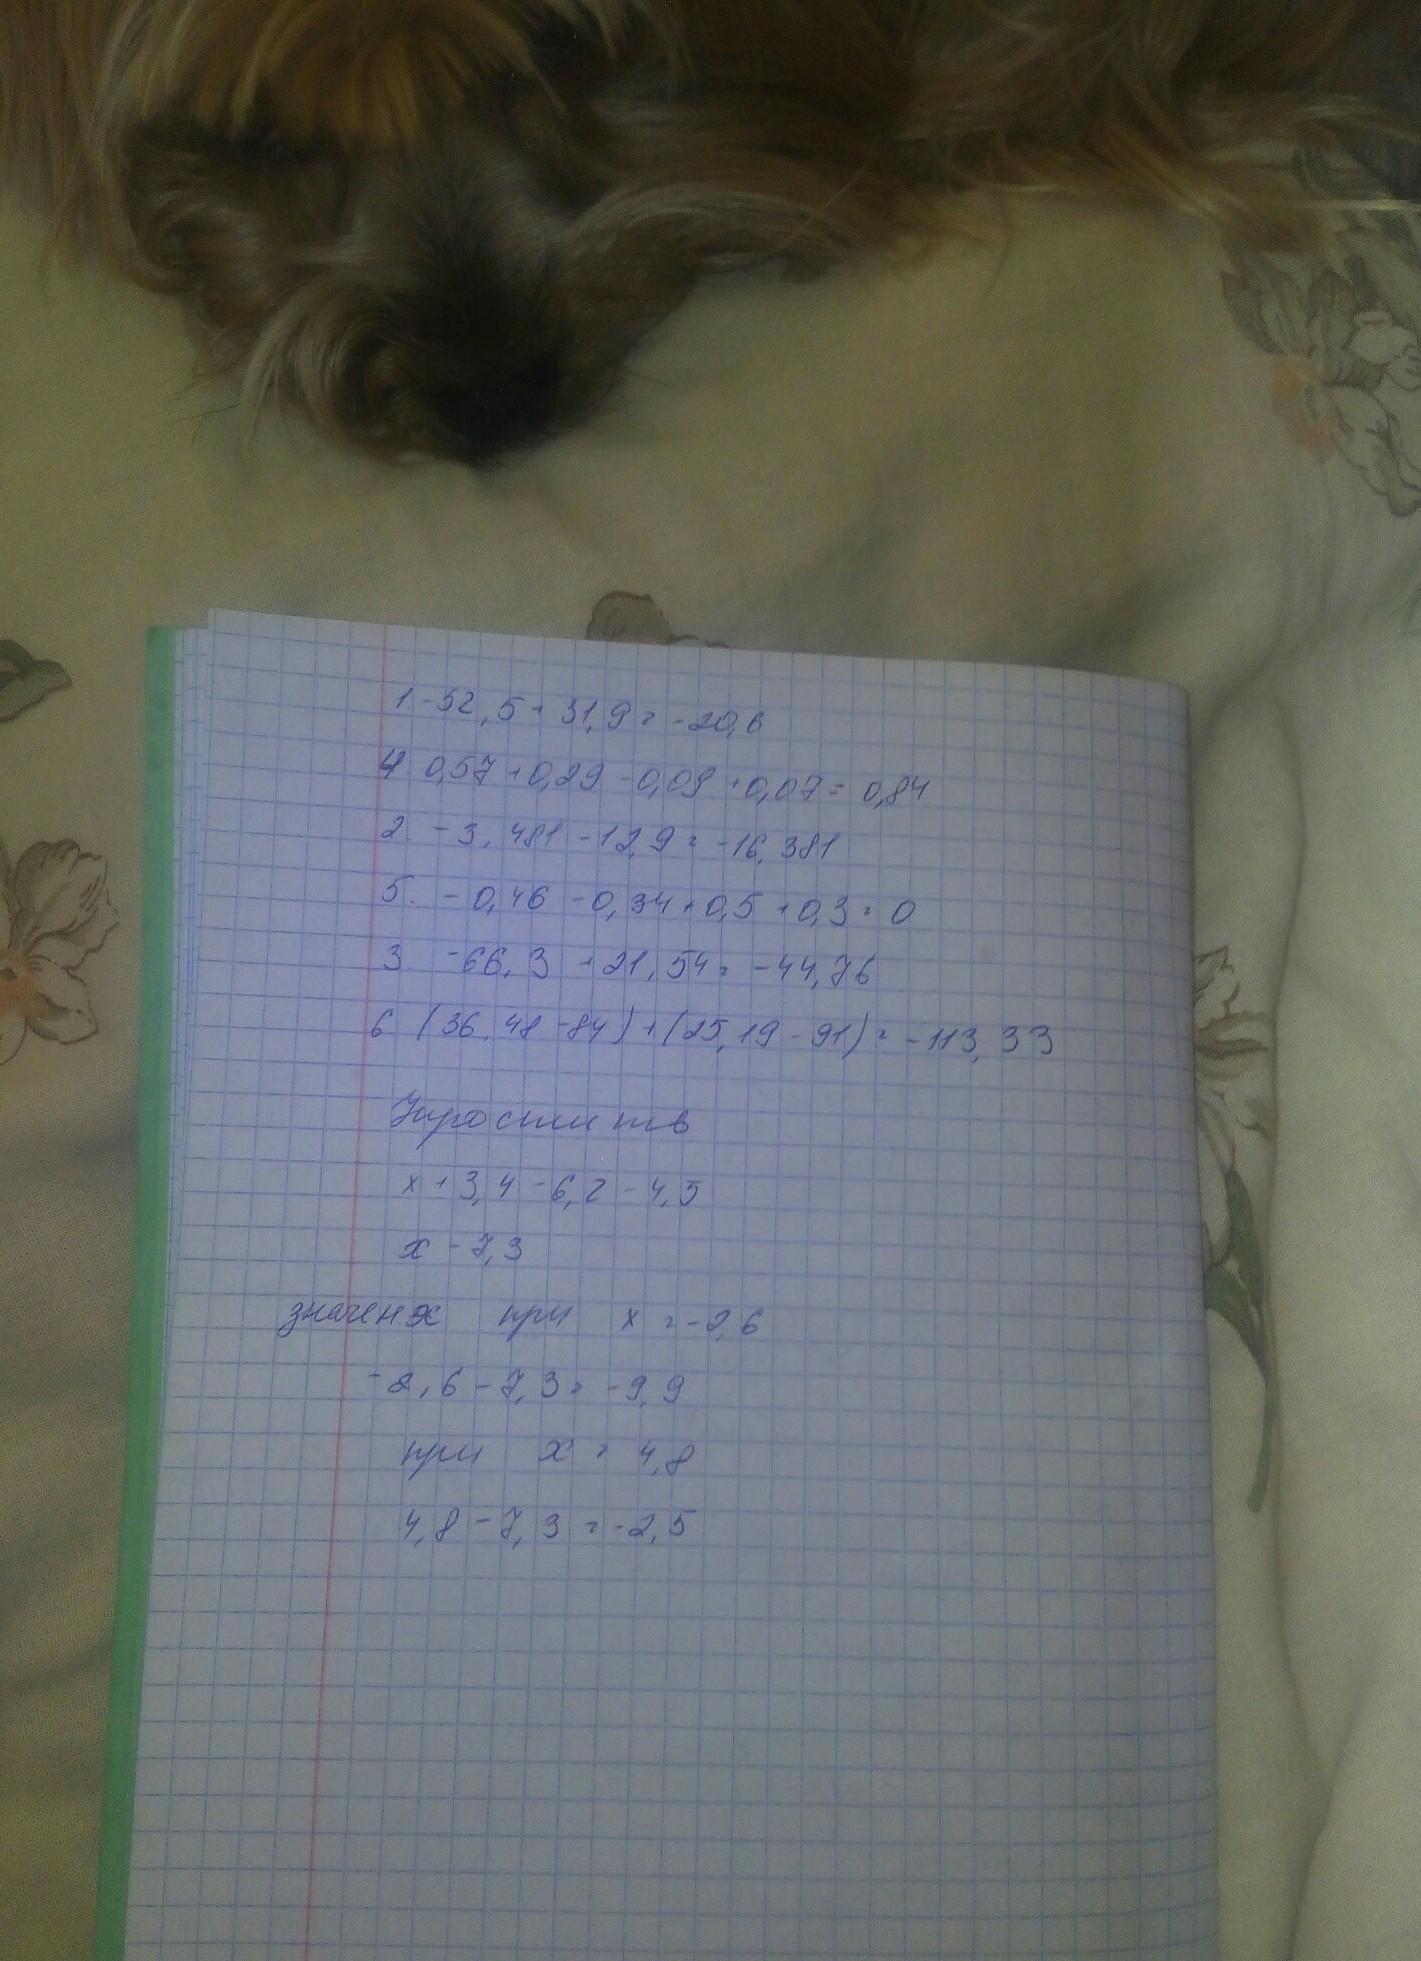 1. -52,5 + 31,9 = -20,6
4 0,57 + 0,29 - 0,09 + 0,07 = 0,84
2. -3,481 - 12,9 = -16,381
5. -0,46 - 0,34 + 0,5 + 0,3 = 0
3 -66,3 + 21,54 = -44,76
6. (36,48 - 84) + (25,19 - 91) = -113,33
Упростить
x + 3,4 - 6,2 - 4,5
x - 7,3
при x = -2,6
-2,6 - 7,3 = -9,9
при x = 4,8
4,8 - 7,3 = -2,5